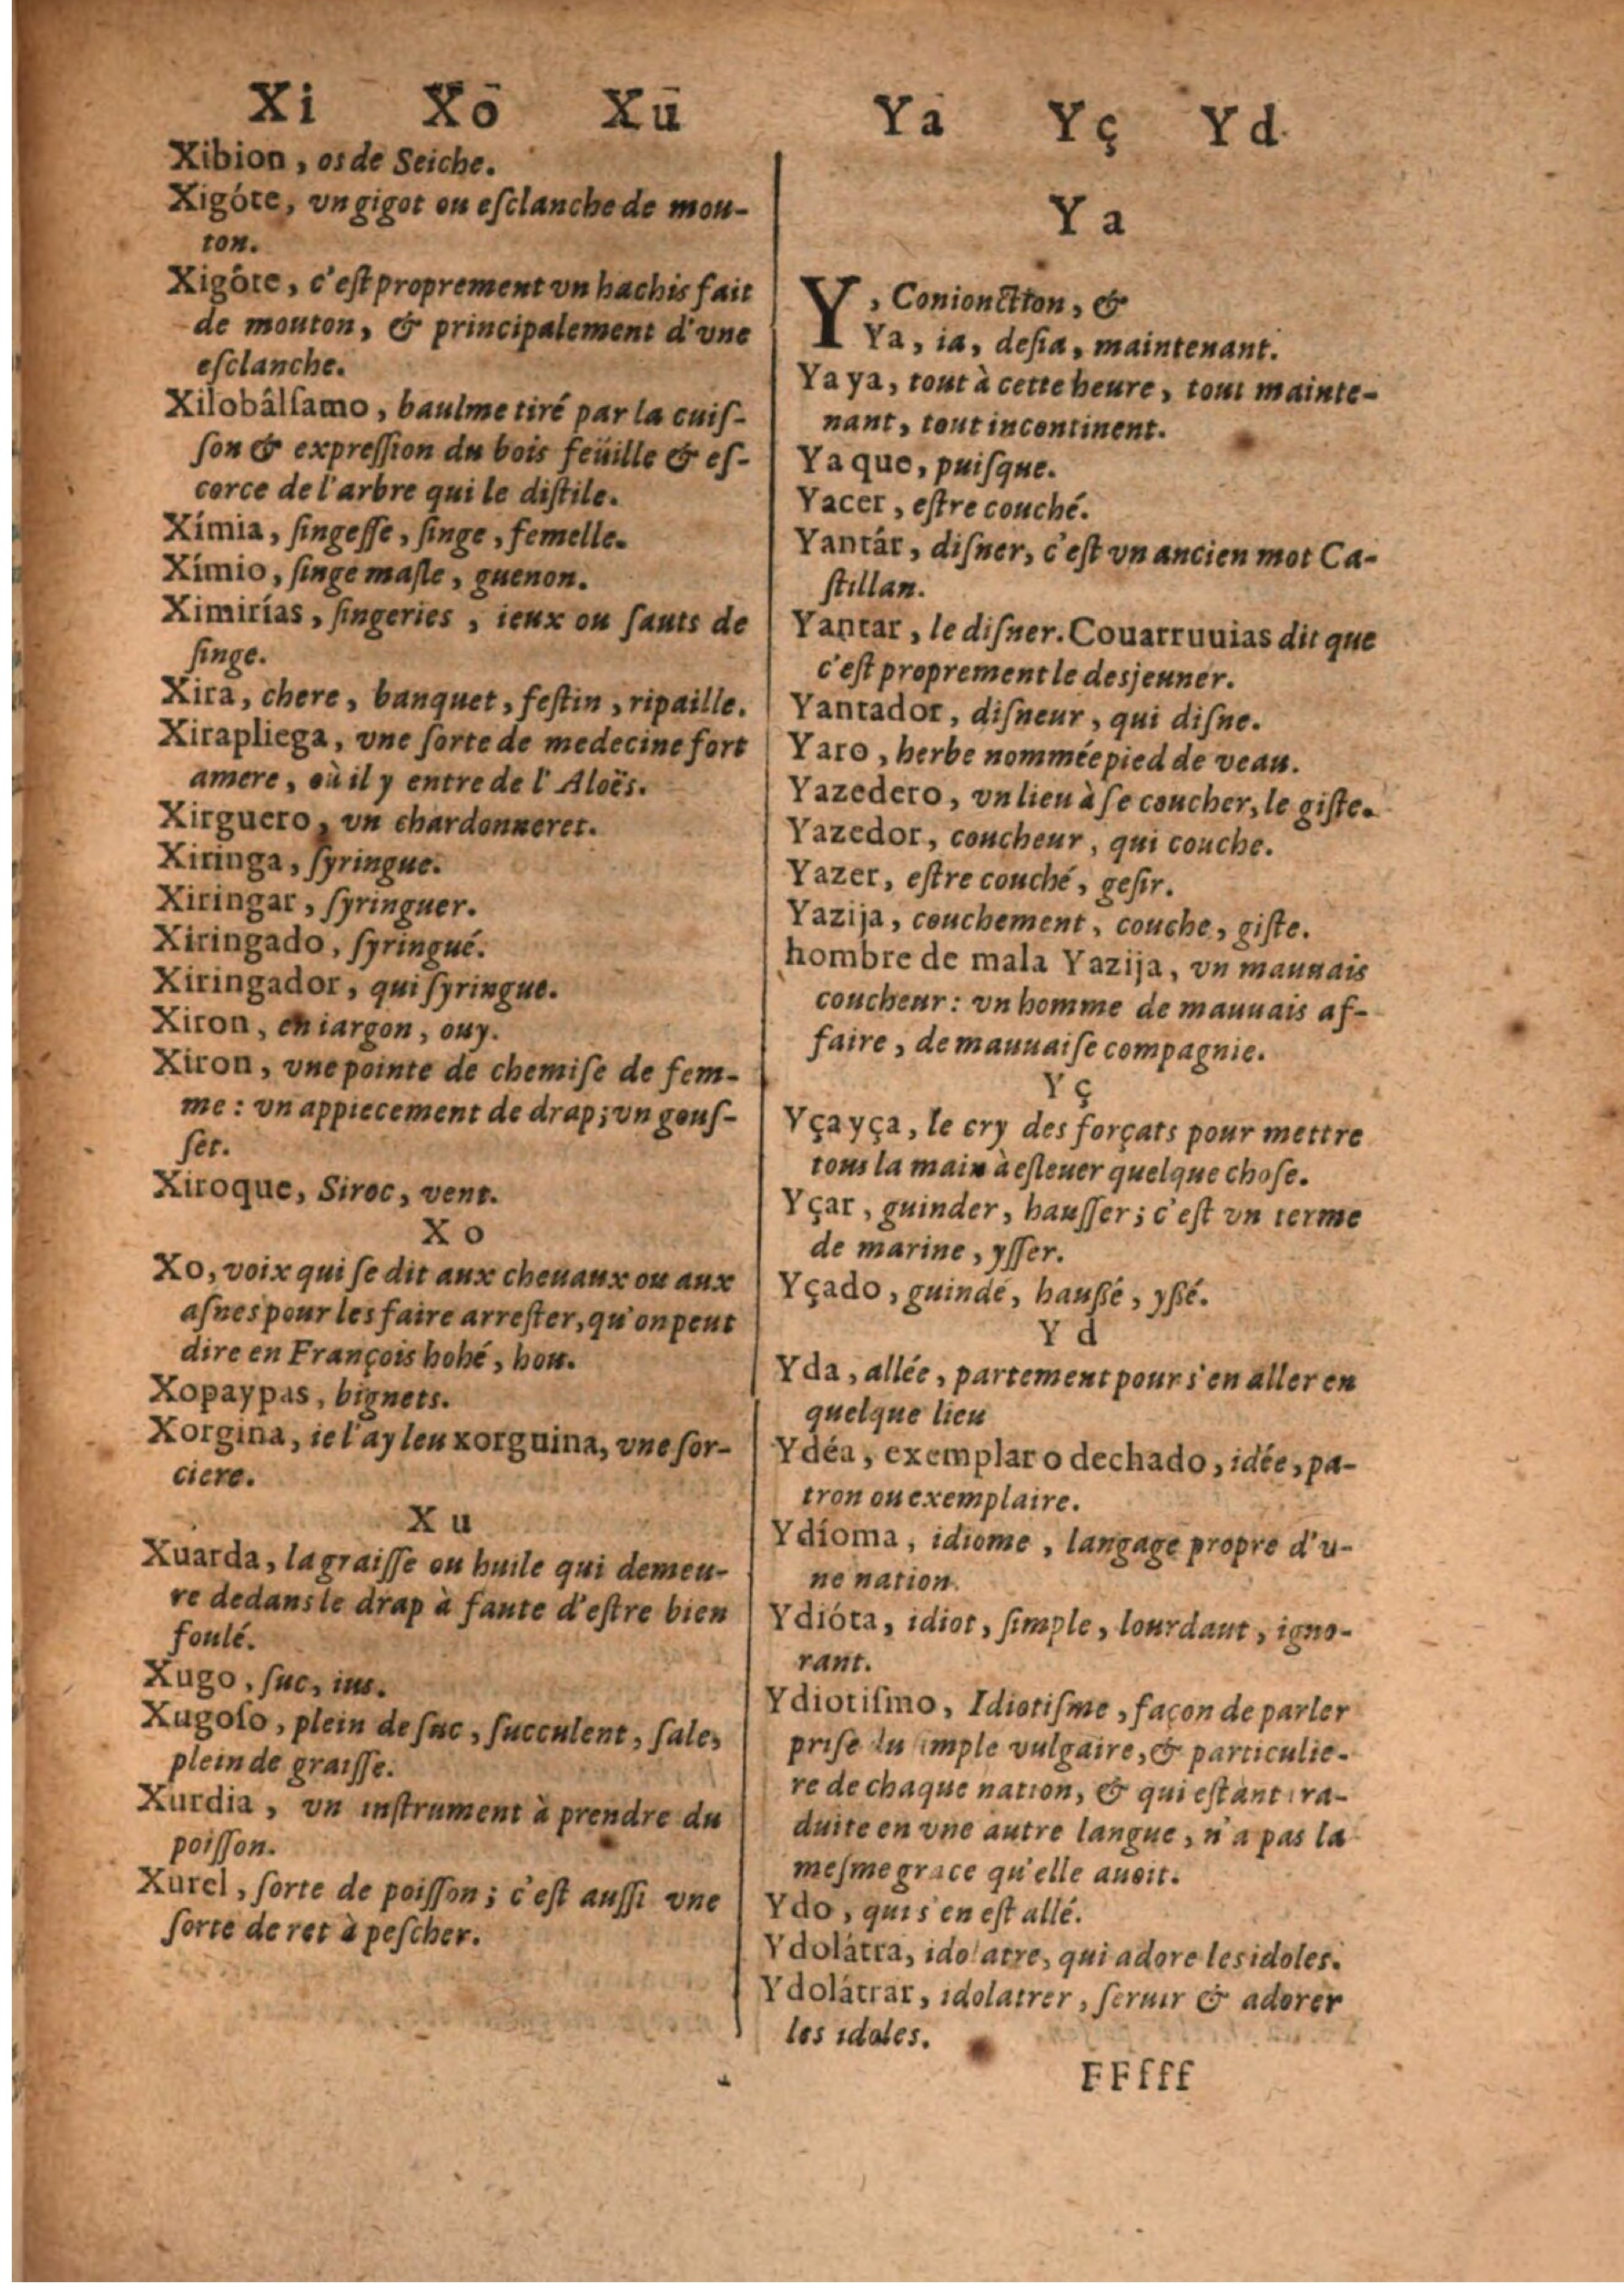 Xi Xō Xū
Xibion, os de Seiche.
Xigóte, vn gigot ou eſclanche de mou-
ton.
Xigôte, c'eſt proprement vn hachis fait
de mouton, & principalement d'vne
eſclanche.
Xilobâlſamo, baulme tiré par la cuiſ-
ſon & expreſſion du bois feüille & eſ-
corce de l'arbre qui le diſtile.
Xímia, ſingeſſe, ſinge, femelle.
Xímio, ſinge maſle, guenon.
Ximirías, ſingeries, ieux ou ſauts de
ſinge.
Xira, chere, banquet, feſtin, ripaille.
Xirapliega, vne ſorte de medecine fort
amere, où il y entre de l'Aloës.
Xirguero, vn chardonneret.
Xiringa, ſyringue.
Xiringar, ſyringuer.
Xiringado, ſyringué.
Xiringador, qui ſyringue.
Xiron, en iargon, ouy.
Xiron, vne pointe de chemiſe de fem-
me: vn appiecement de drap; vn gouſ-
ſet.
Xiroque, Siroc, vent.
Xo
Xo, voix qui ſe dit aux cheuaux ou aux
aſnes pour les faire arreſter, qu'on peut
dire en François hohé, hou.
Xopaypas, bignets.
Xorgina, ie l'ay leu xorguina, vne ſor-
ciere.
Xu
Xuarda, la graiſſe ou huile qui demeu-
re dedans le drap à faute d'eſtre bien
foulé.
Xugo, ſuc, ius.
Xugoſo, plein de ſuc, ſucculent, ſale,
plein de graiſſe.
Xurdia, vn inſtrument à prendre du
poiſſon.
Xurel, ſorte de poiſſon; c'eſt auſſi vne
ſorte de ret à peſcher.
Ya Yç Yd
Ya
Y, Conionction, &
Ya, ia, deſia, maintenant.
Ya ya, tout à cette heure, tout mainte-
nant, tout incontinent.
Ya que, puiſque.
Yacer, eſtre couché.
Yantár, diſner, c'eſt vn ancien mot Ca-
ſtillan.
Yantar, le diſner. Couarruuias dit que
c'eſt proprement le desjeuner.
Yantador, diſneur, qui diſne.
Yaro, herbe nommée pied de veau.
Yazedero, vn lieu à ſe coucher, le giſte.
Yazedor, coucheur, qui couche.
Yazer, eſtre couché, geſir.
Yazija, couchement, couche, giſte.
hombre de mala Yazija, vn mauuais
coucheur: vn homme de mauuais af-
faire, de mauuaiſe compagnie.
Yç
Yça yça, le cry des forçats pour mettre
tous la main à eſleuer quelque choſe.
Yçar, guinder, hauſſer; c'eſt vn terme
de marine, yſſer.
Yçado, guindé, haußé, yßé.
Yd
Yda, allée, partement pour s'en aller en
quelque lieu
Ydéa, exemplar o dechado, idée, pa-
tron ou exemplaire.
Ydíoma, idiome, langage propre d'u-
ne nation.
Ydióta, idiot, ſimple, lourdaut, igno-
rant.
Ydiotiſmo, Idiotiſme, façon de parler
priſe du ſimple vulgaire, & particulie-
re de chaque nation, & qui eſtant tra-
duite en vne autre langue, n'a pas la
meſme grace qu'elle auoit.
Ydo, qui s'en eſt allé.
Ydolátra, idolatre, qui adore les idoles.
Ydolátrar, idolatrer, ſeruir & adorer
les idoles.
FFfff